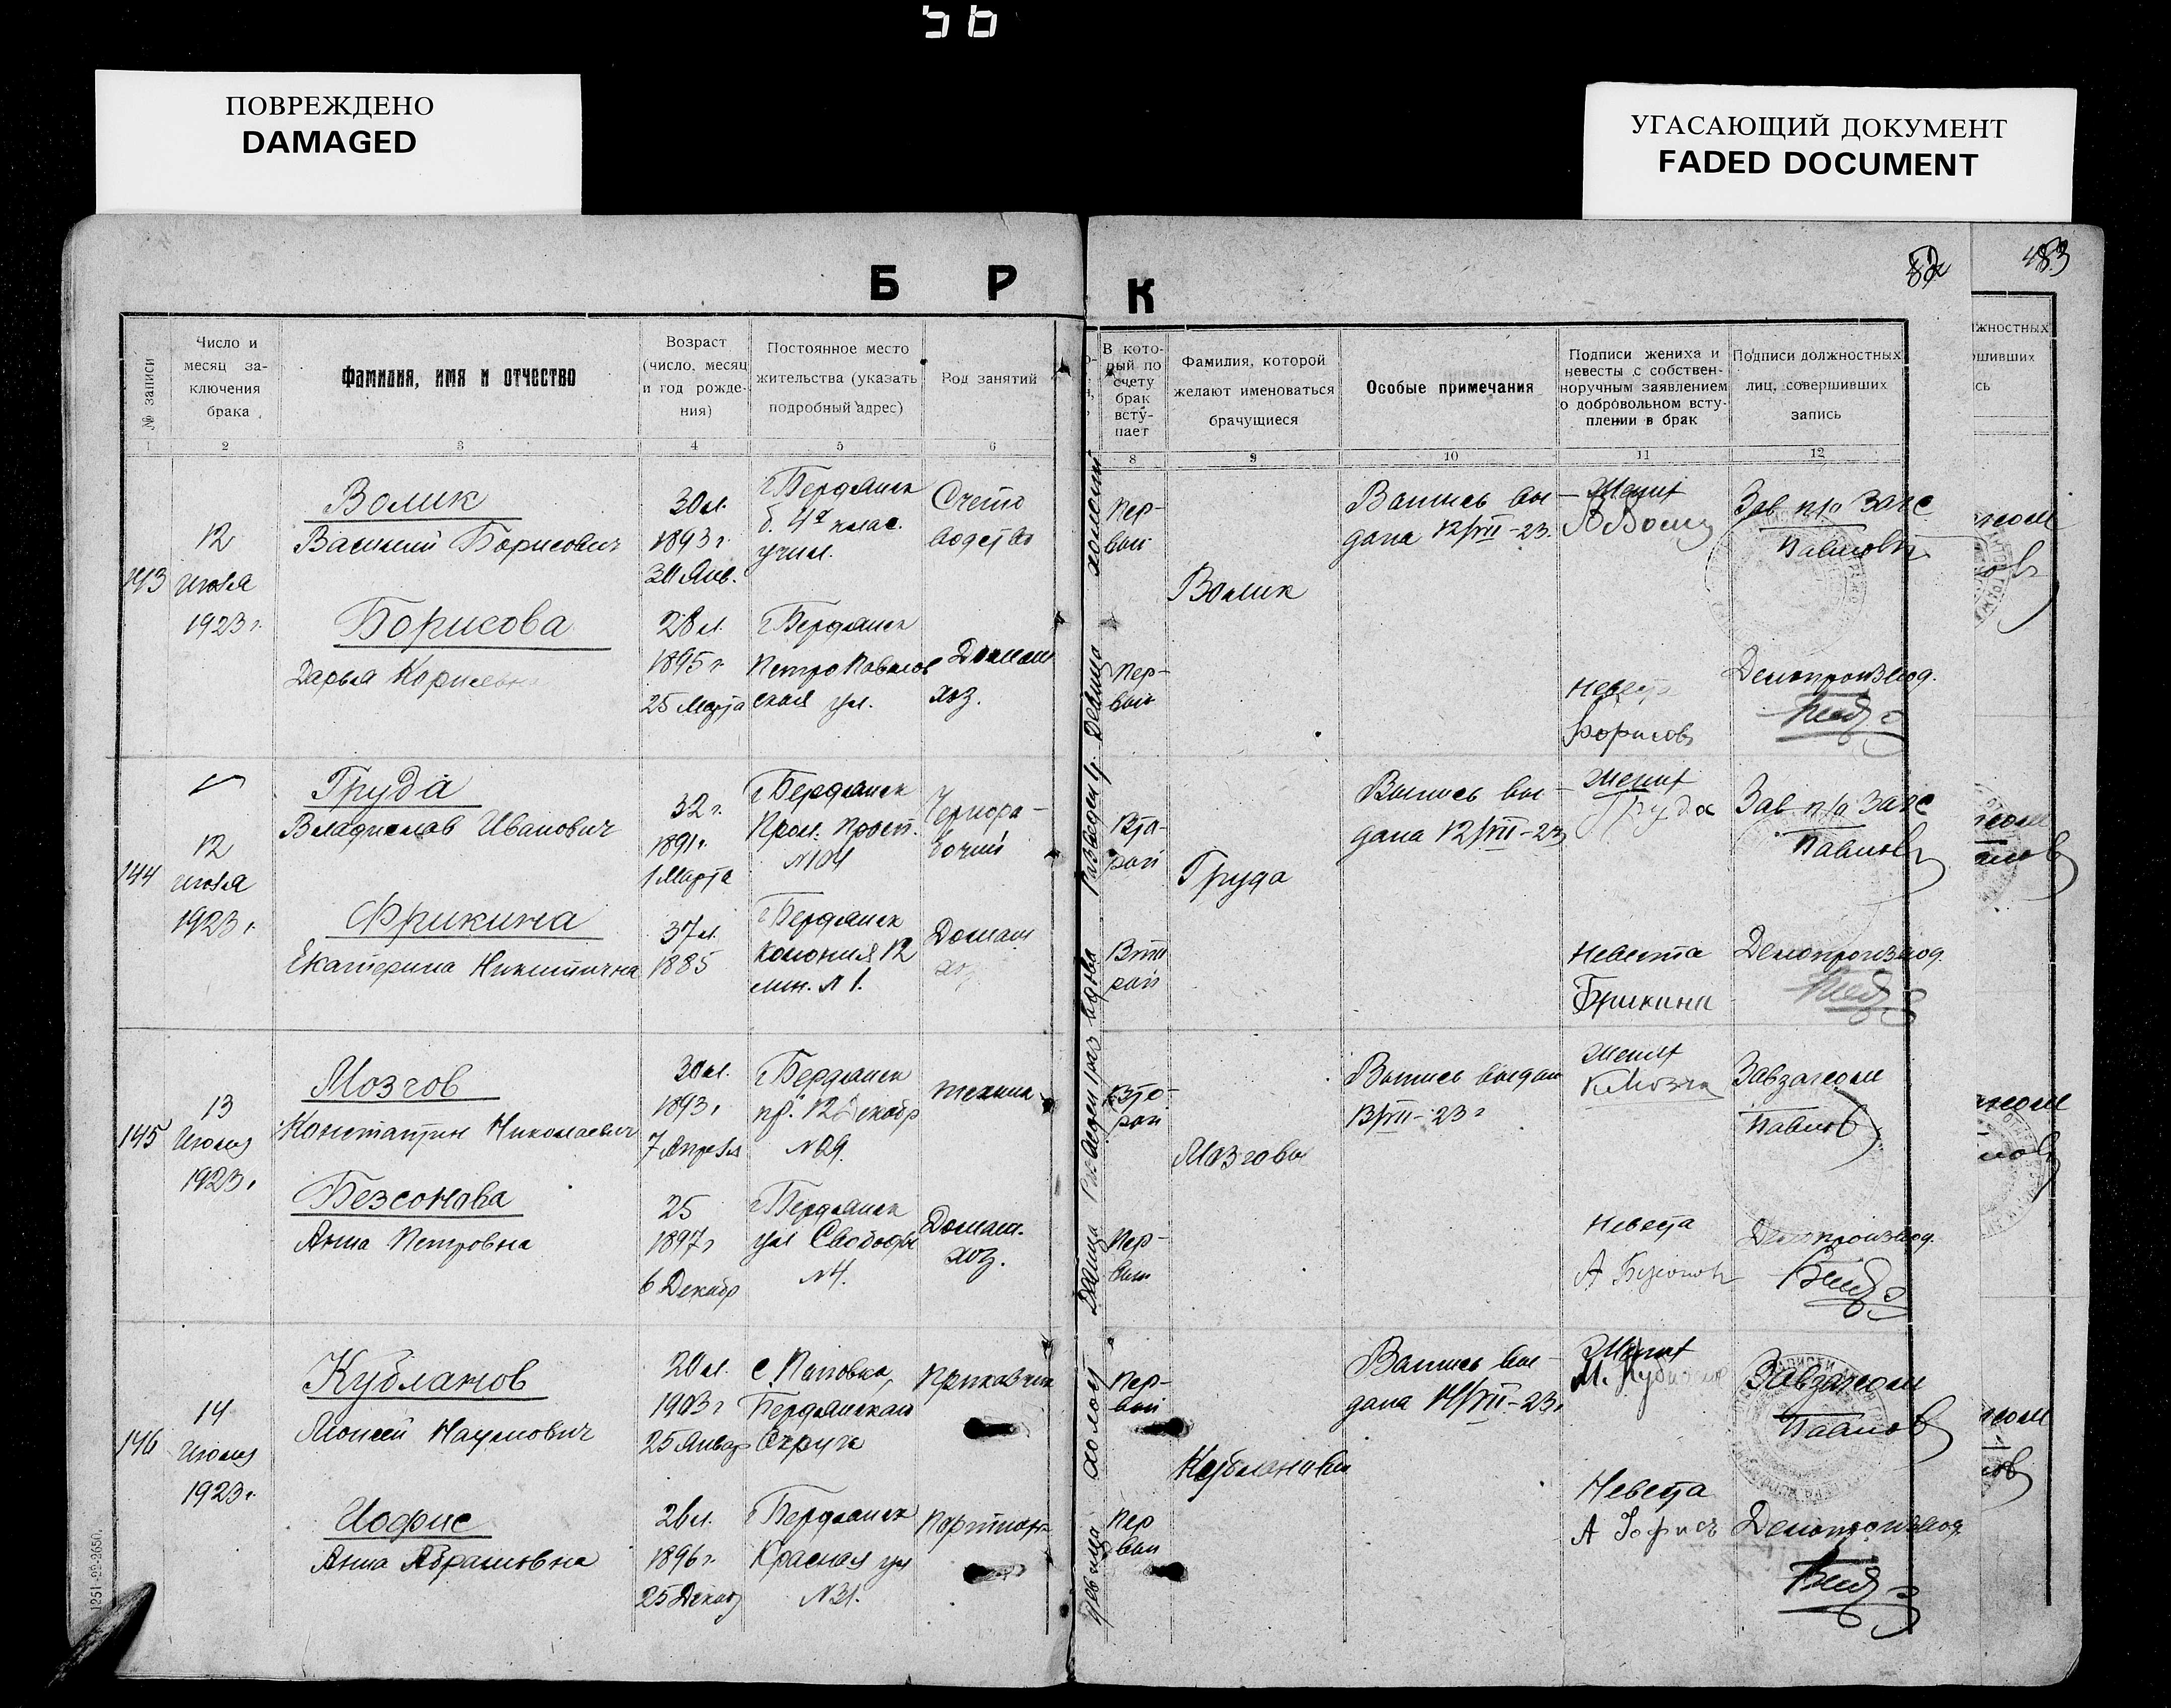 56
ПОВРЕЖДЕНО
DAMAGED
УГАСАЮЩИЙ ДОКУМЕНТ
FADED DOCUMENT
Б Р К
483
№ записи
Число и
месяц за-
ключения
брака
Фамилия, имя и отчество
Возраст
(число, месяц
и год рожде-
ния)
Постоянное место
жительства (указать
подробный адрес)
Род занятий
В кото-
рый по
счету
брак
всту-
пает
Фамилия, которой
желают именоваться
брачущиеся
Особые примечания
Подписи жениха и
невесты с собствен-
норучным заявлением
о добровольном всту-
плении в брак
Подписи должностных
лиц, совершивших
запись
1 2 3 4 5 6 8 9 10 11 12
143
12
июля
1923 г.
Волик
Василий Борисович
30 л.
1893 г.
30 Янв.
г Бердянск
б. 4й клас.
учил.
Счето
водство
холостой
Пер-
вый
Волик
Выпись вы-
дана 12/VII-23.
Жених
Зав п/о Загс
Павлов
Борисова
Дарья
28 л.
1895 г.
25 Марта
г Бердянск
Петропавлов
ская ул.
Домаш
хоз.
девица
Пер-
вый
Невеста
Борисов
Делопроизвод.
144
12
июля
1923 г.
Груда
Владислав Иванович
32 г.
1891 г.
1 Марта
г Бердянск
Прол. просп.
№104
Чернора-
бочий
Разведен
Вто-
рой
Груда
Выпись вы-
дана 12/VII-23
Жених
Груда
Зав п/о Загс
Павлов
Фрикина
Екатерина Никитична
37 л.
1885
г Бердянск
колония 12
лин. № 1.
Домаш
хоз
вдова
Вто
рой
Невеста
Делопроизвод.
145
13
Июля
1923 г
Мозгов
Константин Николаевич
30 л.
1893 г
7 Апреля
г Бердянск
пр. 12 Декабр
№29.
техник
Вто-
рой
Мозговы
Выпись выдан
13/VII-23 г
Жених
Завзагсом
Павлов
Безсонова
Анна Петровна
25
1897 г
6 Декабр
г Бердянск
ул Свободы
№4.
Домаш.
хоз.
Девица
Пер-
вый
Невеста
Делопроизвод.
146
14
Июля
1923 г.
Кубланов
Моисей Наумович
20 л.
1903 г
25 Январ
с. Поповка,
Бердянского
Округа
Приказчик
холост
Пер-
вый
Кублановы
Выпись вы-
дана 14/VII-23 г
Жених
Завзагсом
Павлов
Иофис
Анна Абрамовна
26 л.
1896 г.
25 Декаб
г Бердянск
Красная ул
№31.
Портниха
девица
Пер
вый
Невеста
А Иофисъ
Делопроизвод
1251-22-2650.